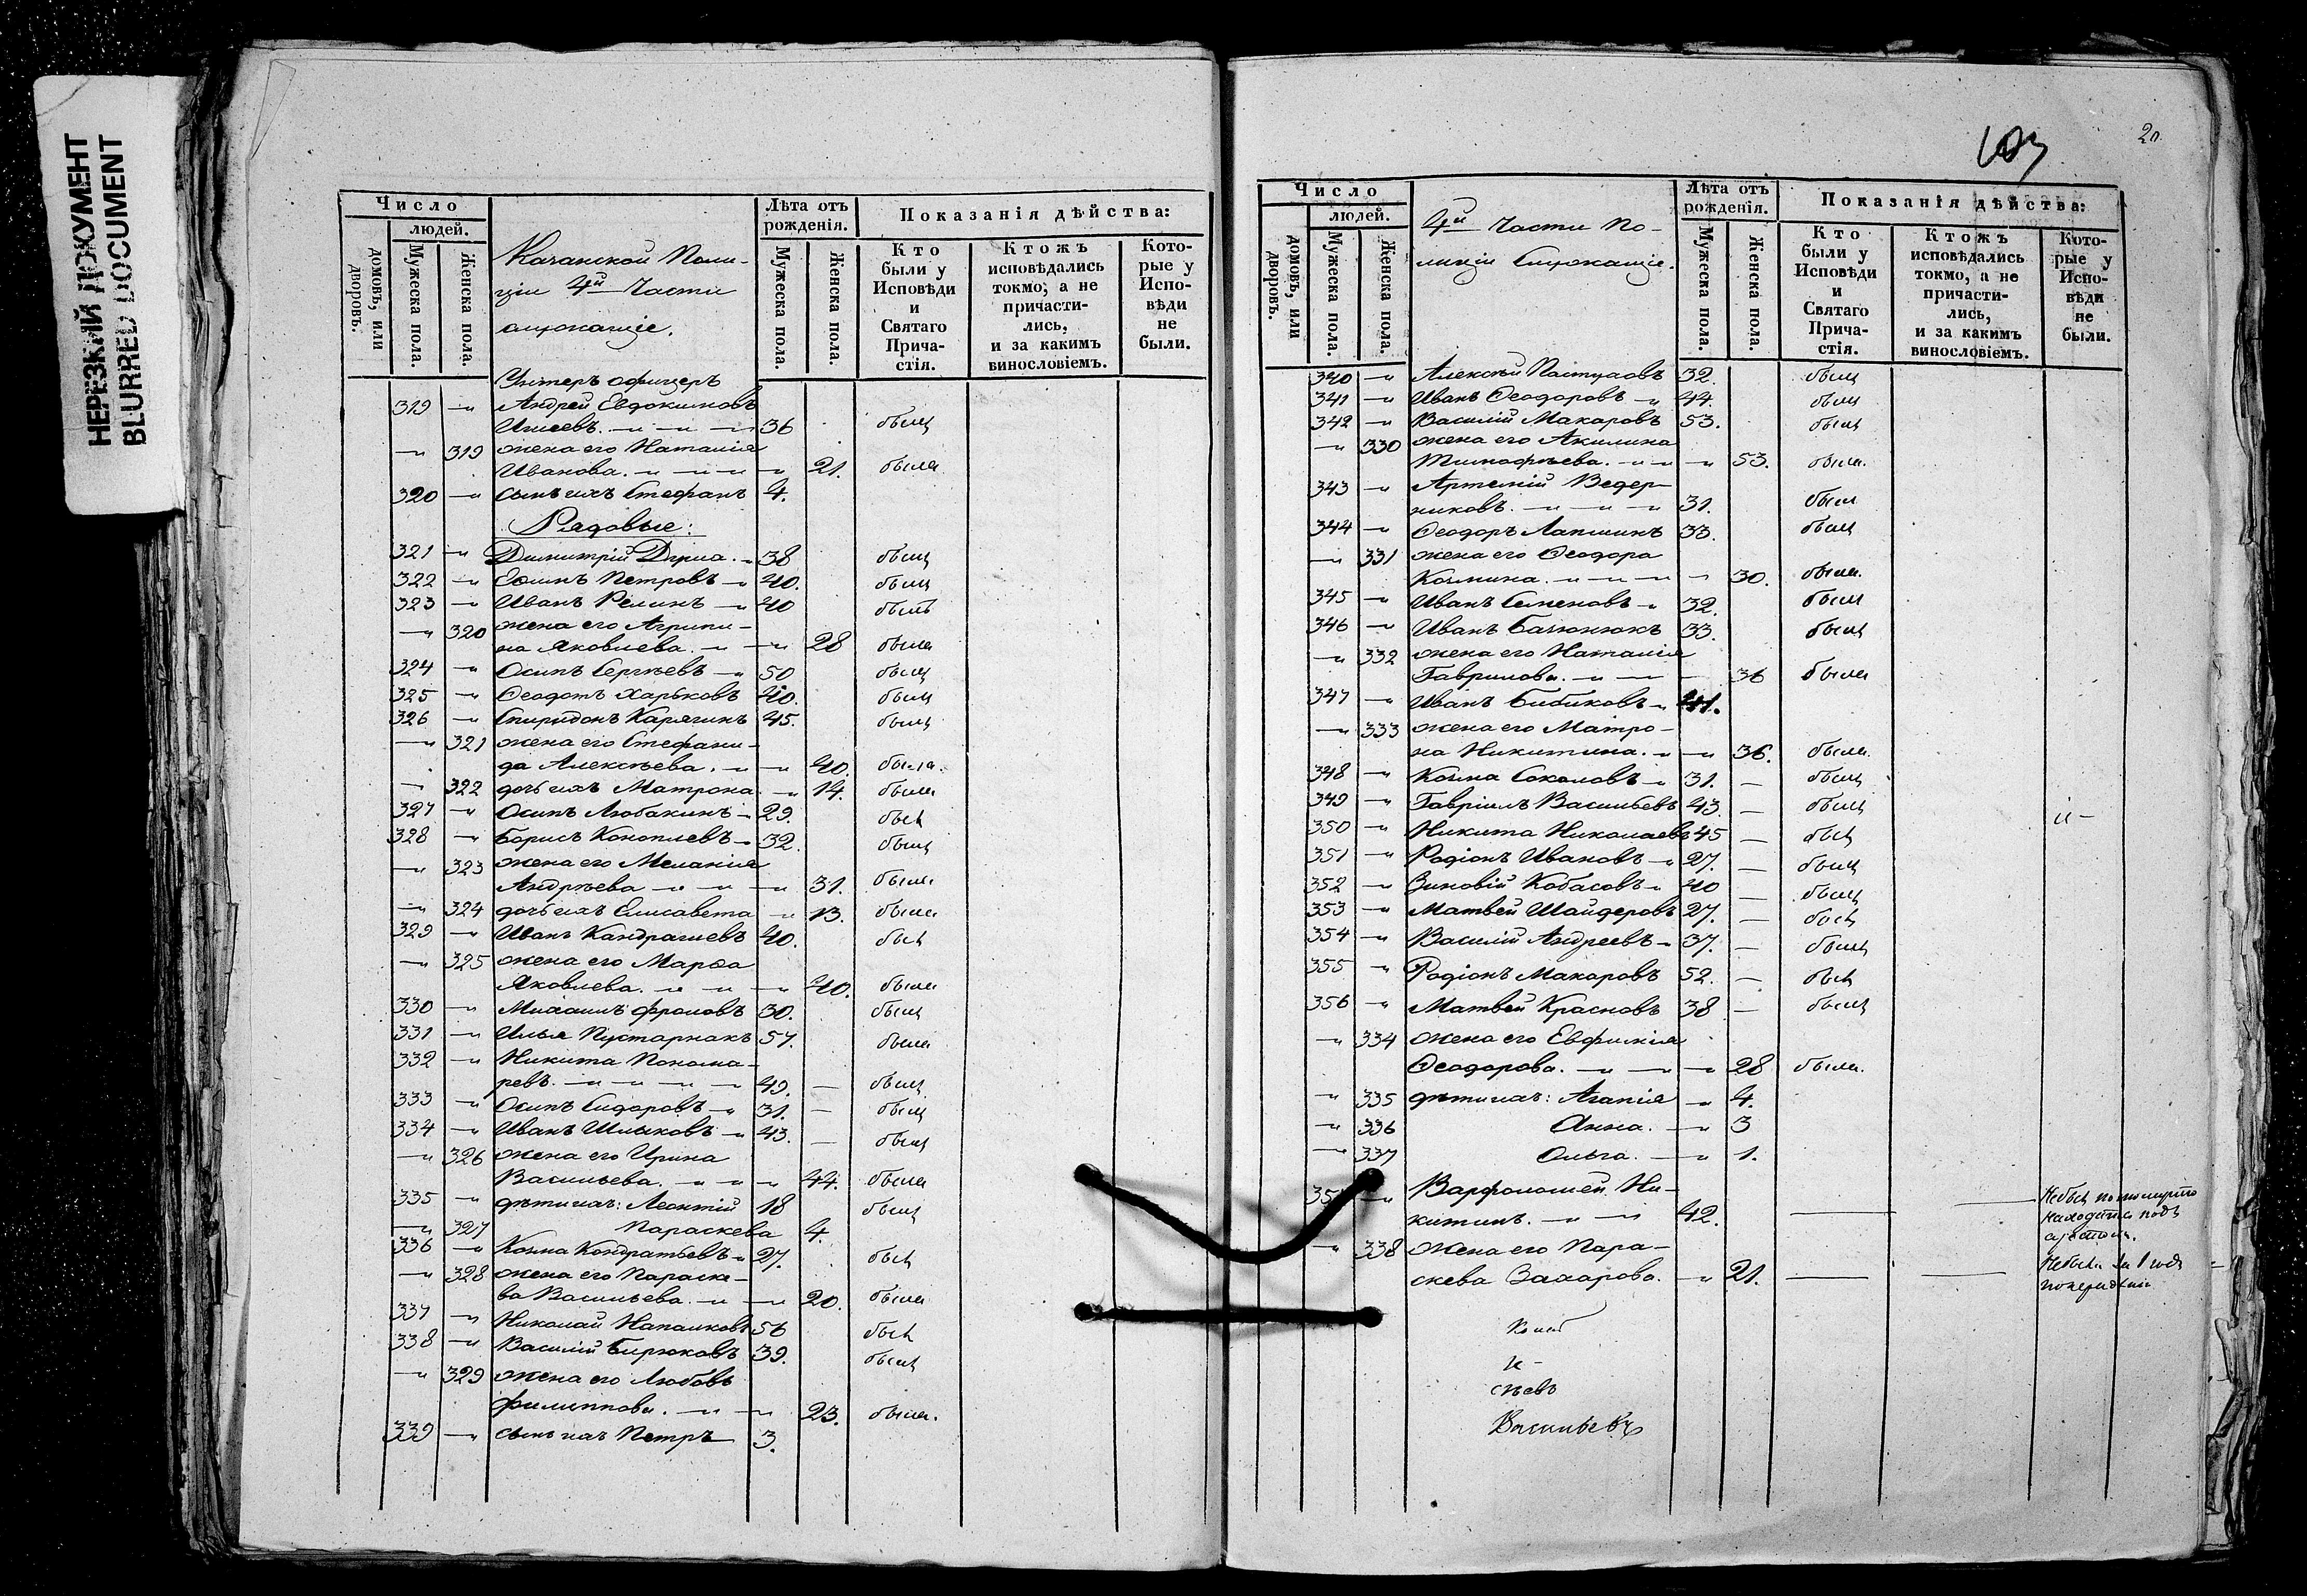 НЕРЕЗКИЙ ДОКУМЕНТ
BLURRED DOCUMENT
Число
людей.
домовъ, или дворовъ.
Мужеска пола.
Женска пола.
Казанской Поли-
ціи 4й Части
служащіе.
Лѣта отъ рожденія.
Мужеска пола.
Женска пола.
Показанія дѣйства:
Кто были у Исповѣди и Святаго Прича-стія.
Ктожъ исповѣдались токмо, а не причасти-лись, и за какимъ винословіемъ.
Кото-рые у Испо-вѣди не были.
Унтеръ офицеръ
319 —„ Андрей Евдокимовъ
—„ —„ —„ 36 былъ
—„ 319 жена его Наталія
Иванова. —„ —„ —„ 21. была
320 —„ сынъ ихъ Стефанъ 4.
Рядовые:
321 —„ Димитрій —„ 38 былъ
322 —„ Петровъ —„ 40. былъ
323 —„ Иванъ —„ 40 былъ
—„ 320 жена его Агрипи-
на Яковлева. —„ —„ 28 была
324 —„ Осипъ Сергѣевъ —„ 50 былъ
325 —„ Ѳеодотъ Харьковъ 40. былъ
326 —„ Спиридонъ Карягинъ 45. былъ
—„ 321 жена его Стефани-
да Алексѣева. —„ —„ 40. была.
—„ 322 дочь ихъ Матрона —„ 14. была
327 —„ Осипъ Любакинъ —„ 29. былъ
328 —„ Борисъ Коноплевъ —„ 32. былъ
—„ 323 жена его Меланія
Андрѣева —„ —„ —„ 31. была
—„ 324 дочь ихъ Елисавета —„ 13. была
329 —„ Иванъ 40. былъ
—„ 325 жена его Марѳа
Яковлева. —„ —„ —„ 40. была
330 —„ Михаилъ Фроловъ 30. былъ
331 —„ Илья Пустарнакъ 57. была
332 —„ Никита Понома-
ревъ. —„ —„ —„ —„ 49. — былъ
333 —„ Осипъ Сидоровъ —„ 31. — былъ
334 —„ Иванъ Шлыковъ —„ 43. — былъ
—„ 326 жена его Ирина
Васильева. —„ —„ —„ 44. была
335 —„ дѣти ихъ: Леонтій 18 былъ
—„ 327 Параскева 4.
336 —„ Козма Кондратьевъ —„ 27. былъ
—„ 328 жена его Параске-
ва Васильева. —„ —„ 20. была
337 —„ Николай Напалковъ 56 былъ
338 —„ Василій Бирюковъ 39. былъ
—„ 329 жена его Любовь
Филиппова. —„ —„ 23. была.
339 —„ сынъ ихъ Петръ 3.
20
Число
людей.
домовъ, или дворовъ.
Мужеска пола.
Женска пола.
4й Части По-
лиціи Служащіе.
Лѣта отъ рожденія.
Мужеска пола.
Женска пола.
Показанія дѣйства:
Кто были у Исповѣди и Святаго Прича-стія.
Ктожъ исповѣдались токмо, а не причасти-лись, и за какимъ винословіемъ.
Кото-рые у Испо-вѣди не были.
340 —„ Алексѣй Пастуховъ 32. былъ
341 —„ Иванъ Ѳеодоровъ —„ 44. былъ
342 —„ Василій Макаровъ 53. былъ
—„ 330 жена его Акилина
Тимофѣева. —„ —„ —„ 53. была.
343 —„ Артемій Ведер-
никовъ. —„ —„ —„ 31. былъ
344 —„ Ѳеодоръ Лапшинъ 33. былъ
—„ 331 жена его Ѳеодора
Козмина. —„ —„ —„ 30. была.
345 —„ Иванъ Семеновъ —„ 32. былъ
346 —„ Иванъ 33. былъ
—„ 332 жена его Наталія
Гаврилова. —„ — — 36 была
347 —„ Иванъ Бибиковъ —„ 41.
—„ 333 жена его Матро-
на Никитина. —„ —„ 36. была.
348 —„ Козма Соколовъ —„ 31. — былъ
349 —„ Гавріилъ Васильевъ 43. — былъ
350 —„ Никита Николаевъ 45 — былъ
351 —„ Родіонъ Ивановъ —„ 27. — былъ
352 —„ Зиновій Кобасовъ —„ 40 — былъ
353 —„ Матвей Шайдеровъ 27. — былъ
354 —„ Василій Андреевъ —„ 37. — былъ
355 —„ Родіонъ Макаровъ 52. — былъ
356 —„ Матвей Красновъ 38 — былъ
—„ 334 жена его Евфимія
Ѳеодорова. —„ —„ —„ 28 была.
—„ 335 дѣти ихъ: Агапія —„ 4.
—„ 336 Анна. —„ 3
—„ 337 Ольга. —„ 1.
—„ Варфоломей Ни-
китинъ. —„ —„ 42.
Не былъ потому что
находится подъ
арестомъ.
—„ 338 жена его Пара-
скева Захарова. —„ 21.
Не была за
и-
сѣевъ
Васильевъ